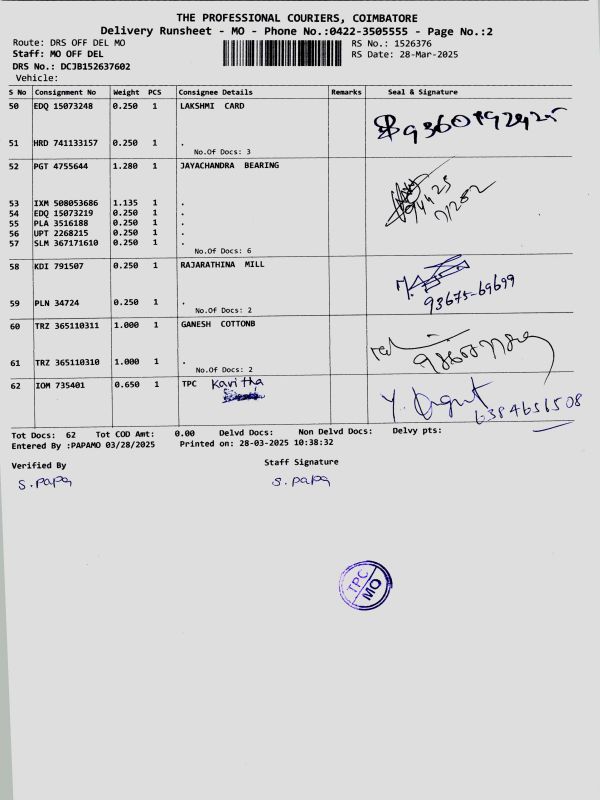 THE PROFESSIONAL COURIERS, COIMBATORE
Delivery Runsheet - MO - Phone No.:0422-3505555 - Page No.:2
Route: DRS OFF DEL MO RS No.: 1526376
Staff: MO OFF DEL RS Date: 28-Mar-2025
DRS No.: DCJB152637602
Vehicle:
S No Consignment No Weight PCS Consignee Details Remarks Seal & Signature
50 EDQ 15073248 0.250 1 LAKSHMI CARD
51 HRD 741133157 0.250 1 .
No.Of Docs: 3
52 PGT 4755644 1.280 1 JAYACHANDRA BEARING
53 IXM 508053686 1.135 1 .
54 EDQ 15073219 0.250 1 .
55 PLA 3516188 0.250 1 .
56 UPT 2268215 0.250 1 .
57 SLM 367171610 0.250 1 .
No.Of Docs: 6
58 KDI 791507 0.250 1 RAJARATHINA MILL
93675-69699
59 PLN 34724 0.250 1 .
No.Of Docs: 2
60 TRZ 365110311 1.000 1 GANESH COTTONB
61 TRZ 365110310 1.000 1 .
No.Of Docs: 2
62 IOM 735401 0.650 1 TPC Kavitha
6384651508
Tot Docs: 62 Tot COD Amt: 0.00 Delvd Docs: Non Delvd Docs: Delvy pts:
Entered By :PAPAMO 03/28/2025 Printed on: 28-03-2025 10:38:32
Verified By Staff Signature
S. papa S. papa
TPC
MO